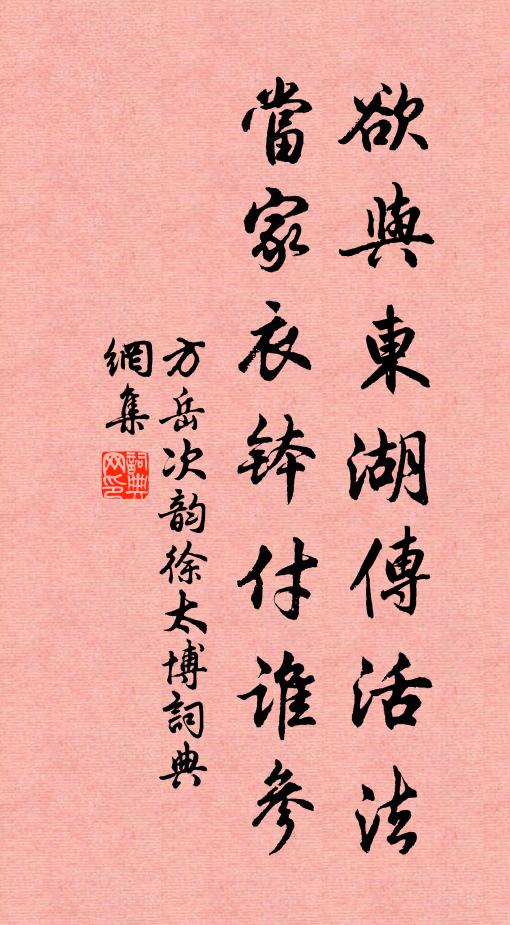 欲與東湖傳活法
當家衣鉢付誰參
方岳次韵徐太博詞典
網集
詞典網印